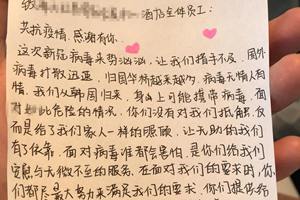 致 酒店全体员工:
共抗疫情,感谢有你
这次新冠病毒来势汹汹,让我们措手不及,国外
病毒扩散迅速,归国华侨越来越多,病毒无情人有
情,我们从韩国归来,身上可能携带病毒,面
对如此危险的情况,你们没有对我们抵触,反
而是给了我们家人一样的照顾,让无助的我们
有了依靠,面对病毒谁都会害怕,是你们给我们
安慰与无微不至的服务,在面对我们的要求时,你
们都尽最大努力来满足我们的要求,你们提供给